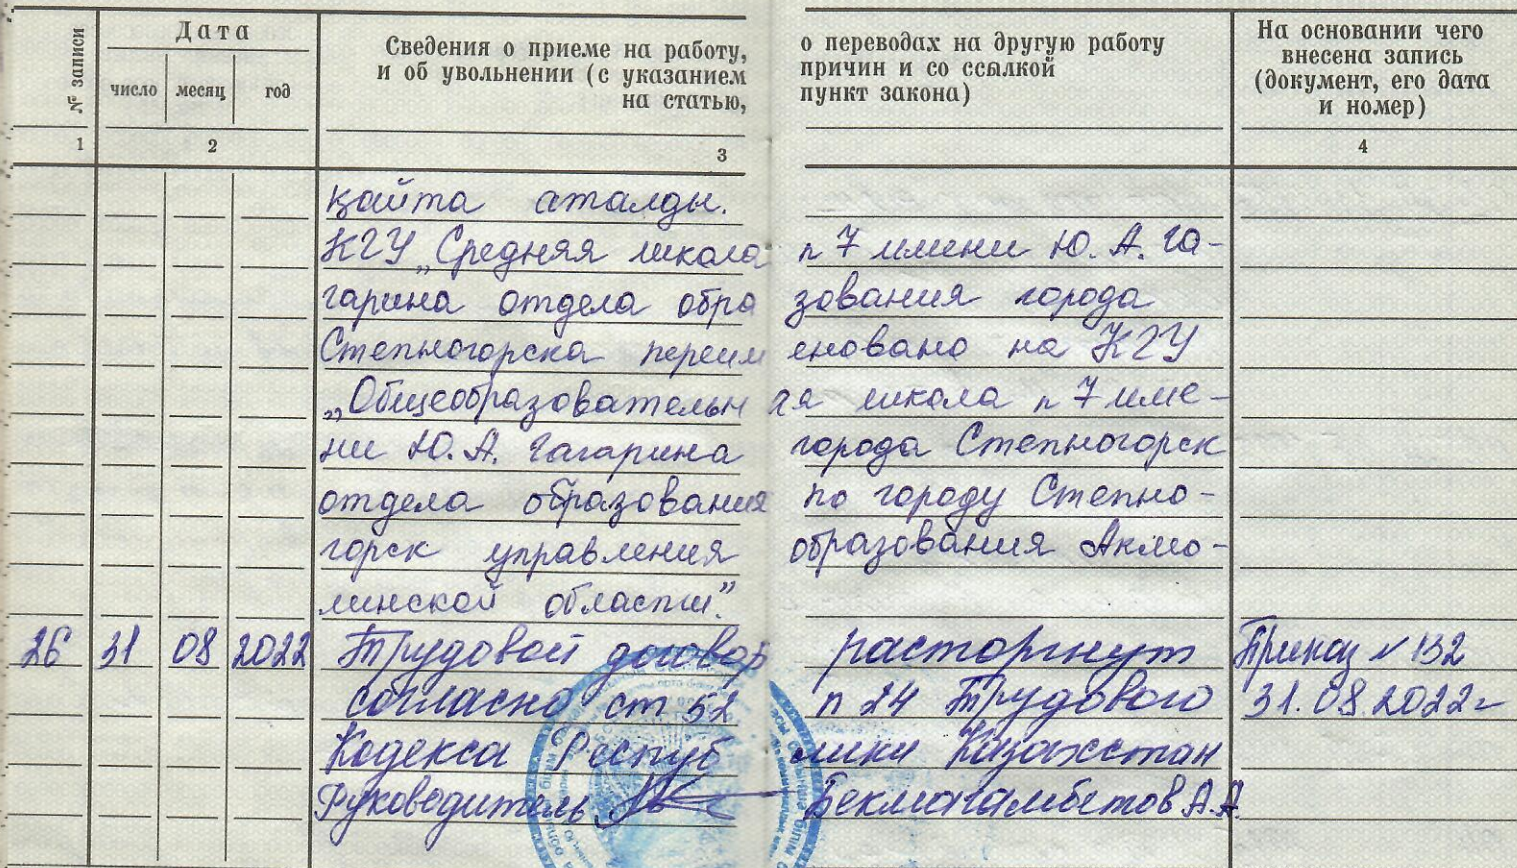 № записи
Дата
число месяц год
Сведения о приеме на работу, о переводах на другую работу
и об увольнении (с указанием причин и со ссылкой
на статью, пункт закона)
На основании чего
внесена запись
(документ, его дата
и номер)
1 2 3 4
қайта аталды.
КГУ „Средняя школа n 7 имени Ю. А. Га-
гарина отдела образования города
Степногорска переименовано на КГУ
„Общеобразовательная школа n 7 име-
ни Ю. А. Гагарина города Степногорск
отдела образования по городу Степно-
горск управления образования Акмо-
линской области".
26 31 08 2022 Трудовой договор расторгнут Приказ N 132
согласно ст 52 п 24 Трудового 31.08.2022г
Кодекса Республики Казахстан
Руководитель Бекмагамбетов А.А.